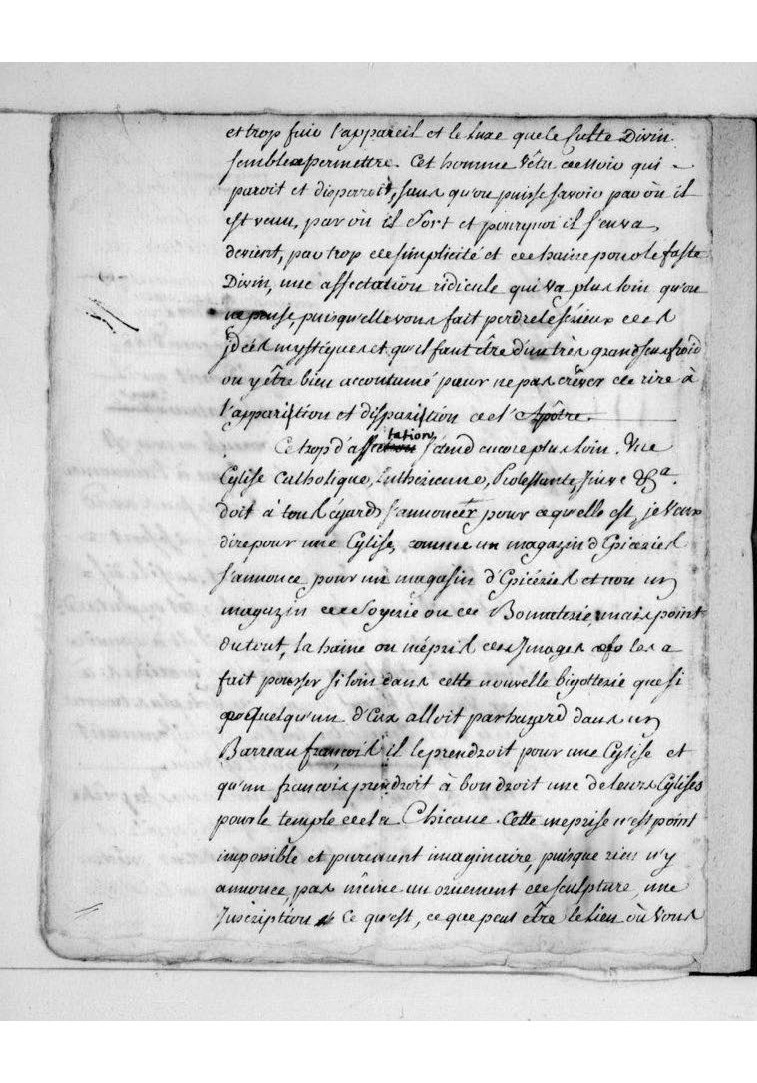 et trop fuir l'appareil et le luxe que le Culte Divin
semble permettre. Cet homme vêtu de noir qui
paroit et disparoit, sans qu'on puisse savoir par où il
est venu, par où il sort et pourquoi il s'en va,
devient, par trop de simplicité et de haine pour le faste
Divin, une affectation ridicule qui va plus loin qu'on
ne pense, puisqu'elle vous fait perdre le sérieux des
jdées mystiques et qu'il faut être d'un très grand sens froid
ou y être bien accoutumé pour ne pas crêver de rire à
l'apparition et disparition de l'Apôtre.
Ce trop d'affectation s'étend encore plus loin. Une
Eglise Catholique, Luthérienne, Protestante, Juive &a.
doit à tous égards s'annoncer pour ce qu'elle est, je veux
dire pour une Eglise, comme un magazin d'Epiceries
s'annonce pour un magasin d'Epiceries et non un
magazin de soyerie ou de Bonneterie, mais point
du tout, la haine ou mépris des Images les a
fait pousser si loin dans cette nouvelle bigotterie que si
quelqu'un d'Eux alloit par hazard dans un
Barreau françois il le prendroit pour une Eglise et
qu'un françois prendroit à bon droit une de leurs Eglises
pour le temple de la Chicane. Cette meprise n'est point
impossible et purement imaginaire, puisque rien n'y
annonce, pas même un ornement de sculpture, une
Inscription ce qu'est, ce que peut être le lieu où vous